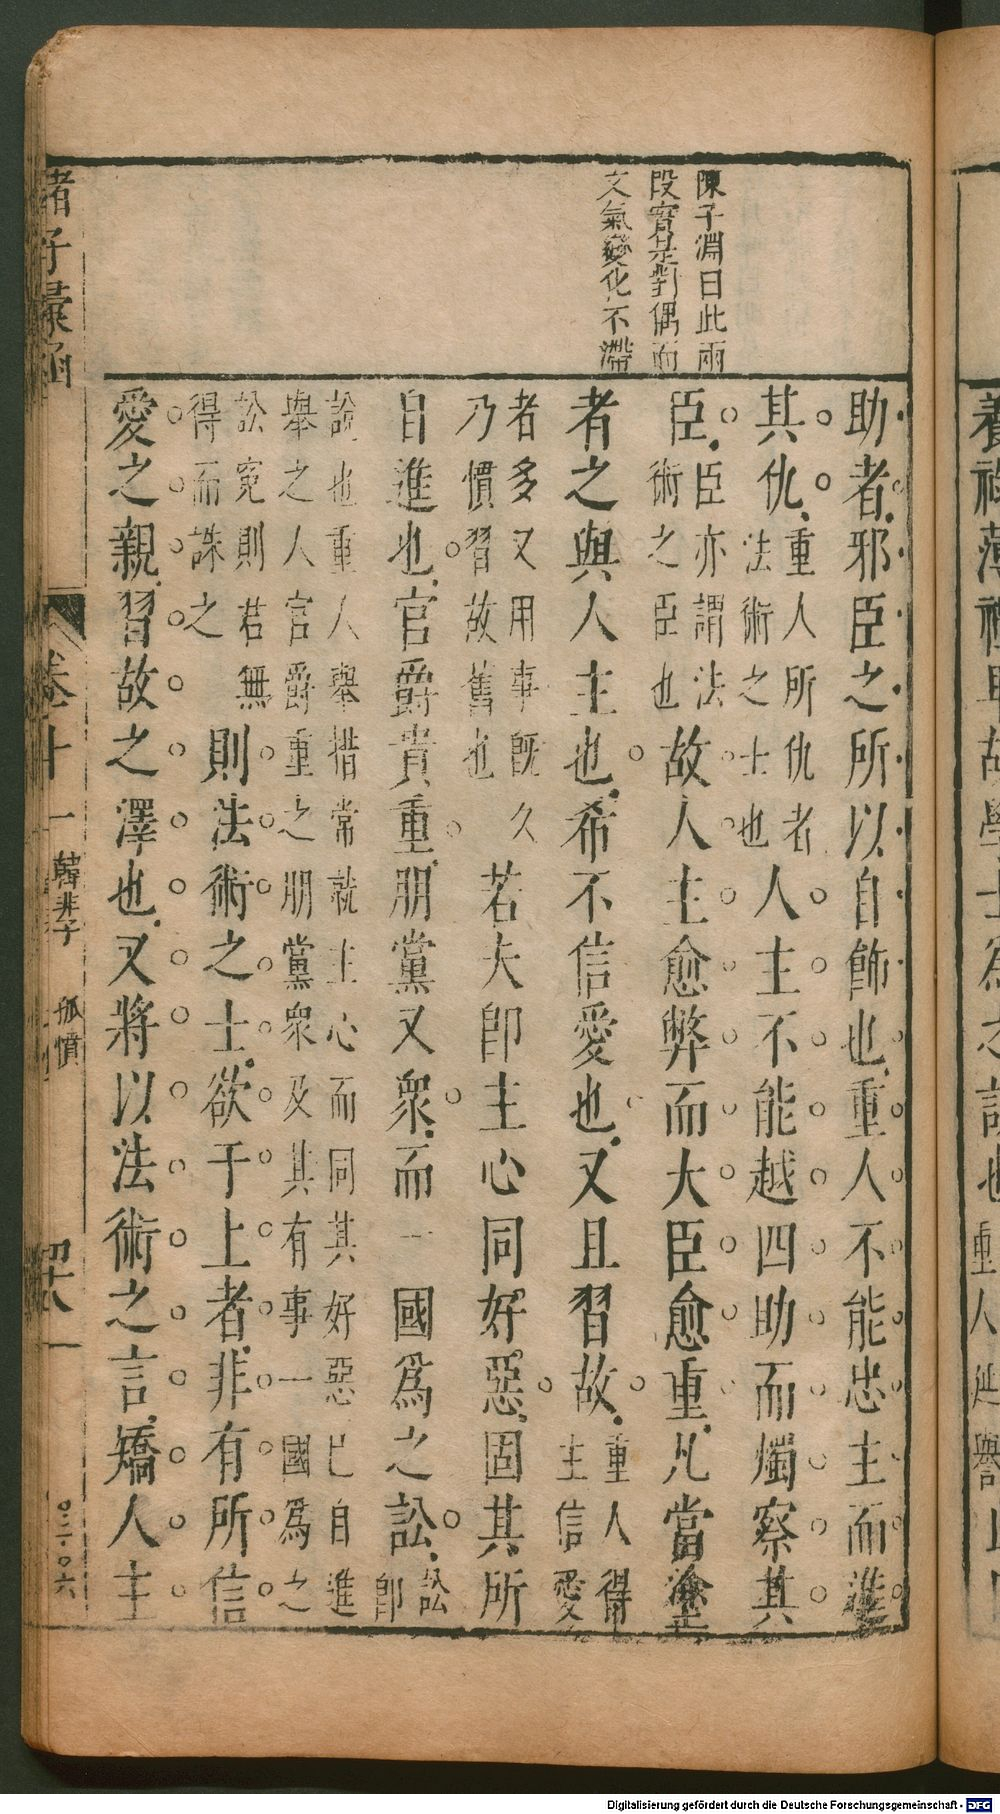 養祿薄禮卑故學士爲之談也重人延譽
陳子淵曰此兩
段實是對偶而
文氣變化不滯
助者、邪臣之所以自飾也、重人不能忠主而進
其仇、重人所仇者法術之士也人主不能越四助而燭察其
臣、臣亦謂法術之臣也故人主愈弊而大臣愈重、凡當塗
者之與人主也、希不信愛也、又且習故、重人得主信愛
者多又用事旣久乃慣習故舊也若夫卽主心同好惡、固其所
自進也、官爵貴重、朋黨又衆、而一國爲之訟、訟卽
說也重人舉措常就主心而同其好惡已自進
舉之人官爵重之朋黨衆及其有事一國爲之
訟寃則君無得而誅之則法術之士、欲于上者、非有所信
愛之親、習故之澤也、又將以法術之言、矯人主
諸子彙函 卷十一 韓非子 孤憤 四十八
Digitalisierung gefördert durch die Deutsche Forschungsgemeinschaft - DFG